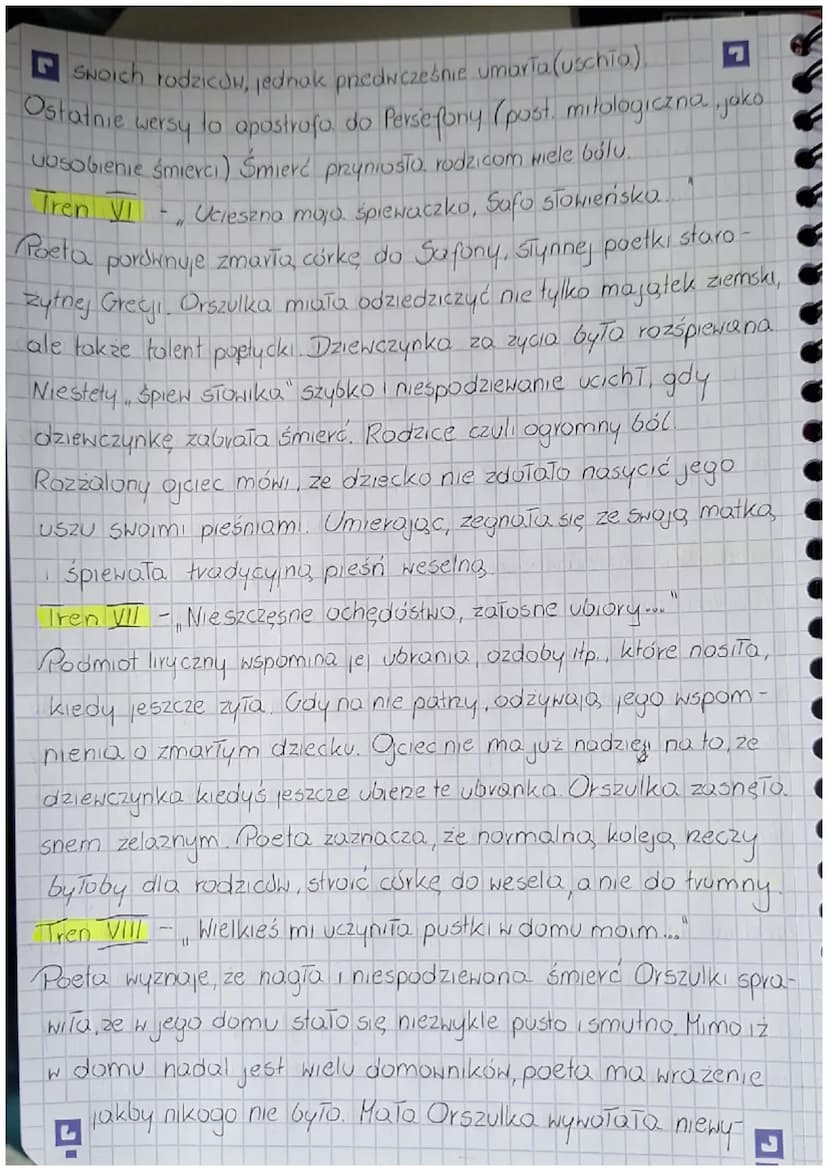 swoich rodziców, jednak przedwcześnie umarła (uschła).
Ostatnie wersy to apostrofa do Persefony (post. mitologiczna, jako
uosobienie śmierci) Śmierć przyniosła rodzicom wiele bólu.
Tren VI - „Ucieszna moja śpiewaczko, Safo słowieńska..."
Poeta porównuje zmarłą córkę do Safony, słynnej poetki staro-
żytnej Grecji. Orszulka miała odziedziczyć nie tylko majątek ziemski,
ale także talent poetycki. Dziewczynka za życia była rozśpiewana
Niestety „śpiew słowika" szybko i niespodziewanie ucichł, gdy
dziewczynkę zabrała śmierć. Rodzice czuli ogromny ból.
Rozżalony ojciec mówi, że dziecko nie zdołało nasycić jego
uszu swoimi pieśniami. Umierając, żegnała się ze swoją matką
i śpiewała tradycyjną pieśń weselną
Tren VII - „Nieszczęsne ochędóstwo, żałosne ubiory..."
Podmiot liryczny wspomina jej ubrania, ozdoby itp., które nosiła,
kiedy jeszcze żyła. Gdy na nie patrzy, odżywają jego wspom-
nienia o zmarłym dziecku. Ojciec nie ma już nadziei na to, że
dziewczynka kiedyś jeszcze ubierze te ubranka. Orszulka zasnęła
snem żelaznym. Poeta zaznacza, że normalną koleją rzeczy
byłoby dla rodziców, stroić córkę do wesela, a nie do trumny.
Tren VIII - „Wielkieś mi uczyniła pustki w domu moim..."
Poeta wyznaje, że nagła i niespodziewana śmierć Orszulki spra-
wiła, że w jego domu stało się niezwykle pusto i smutno. Mimo iż
w domu nadal jest wielu domowników, poeta ma wrażenie
jakby nikogo nie było. Mała Orszulka wywołała niewy-